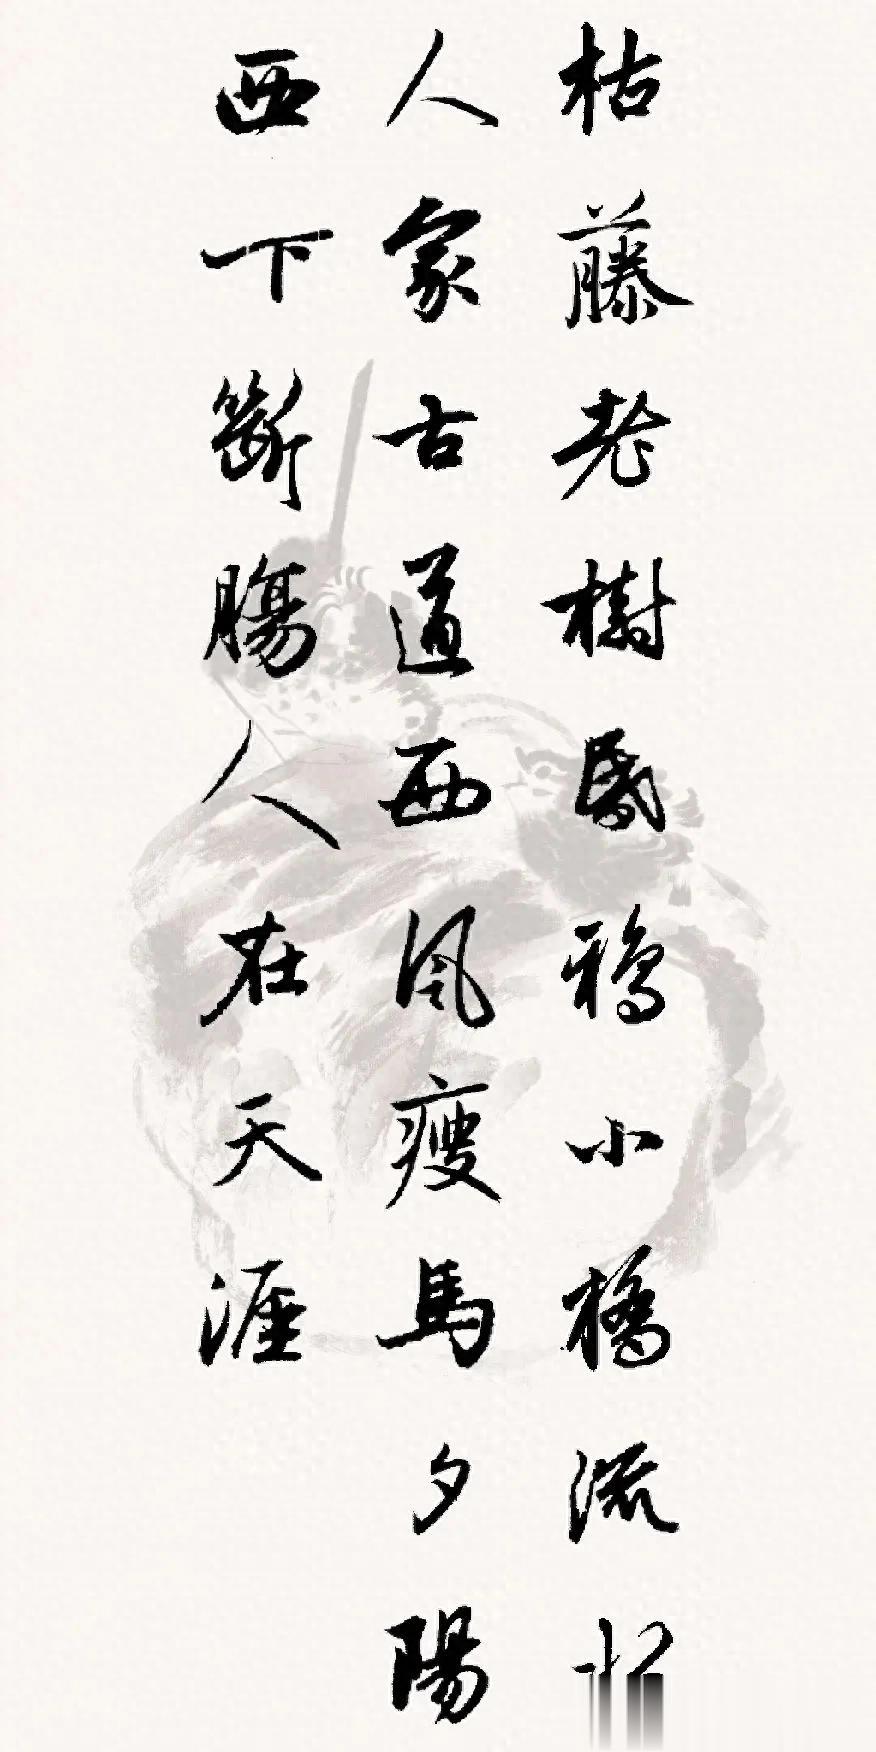 枯藤老樹昏鴉小橋流水
人家古道西風瘦馬夕陽
西下斷腸人在天涯